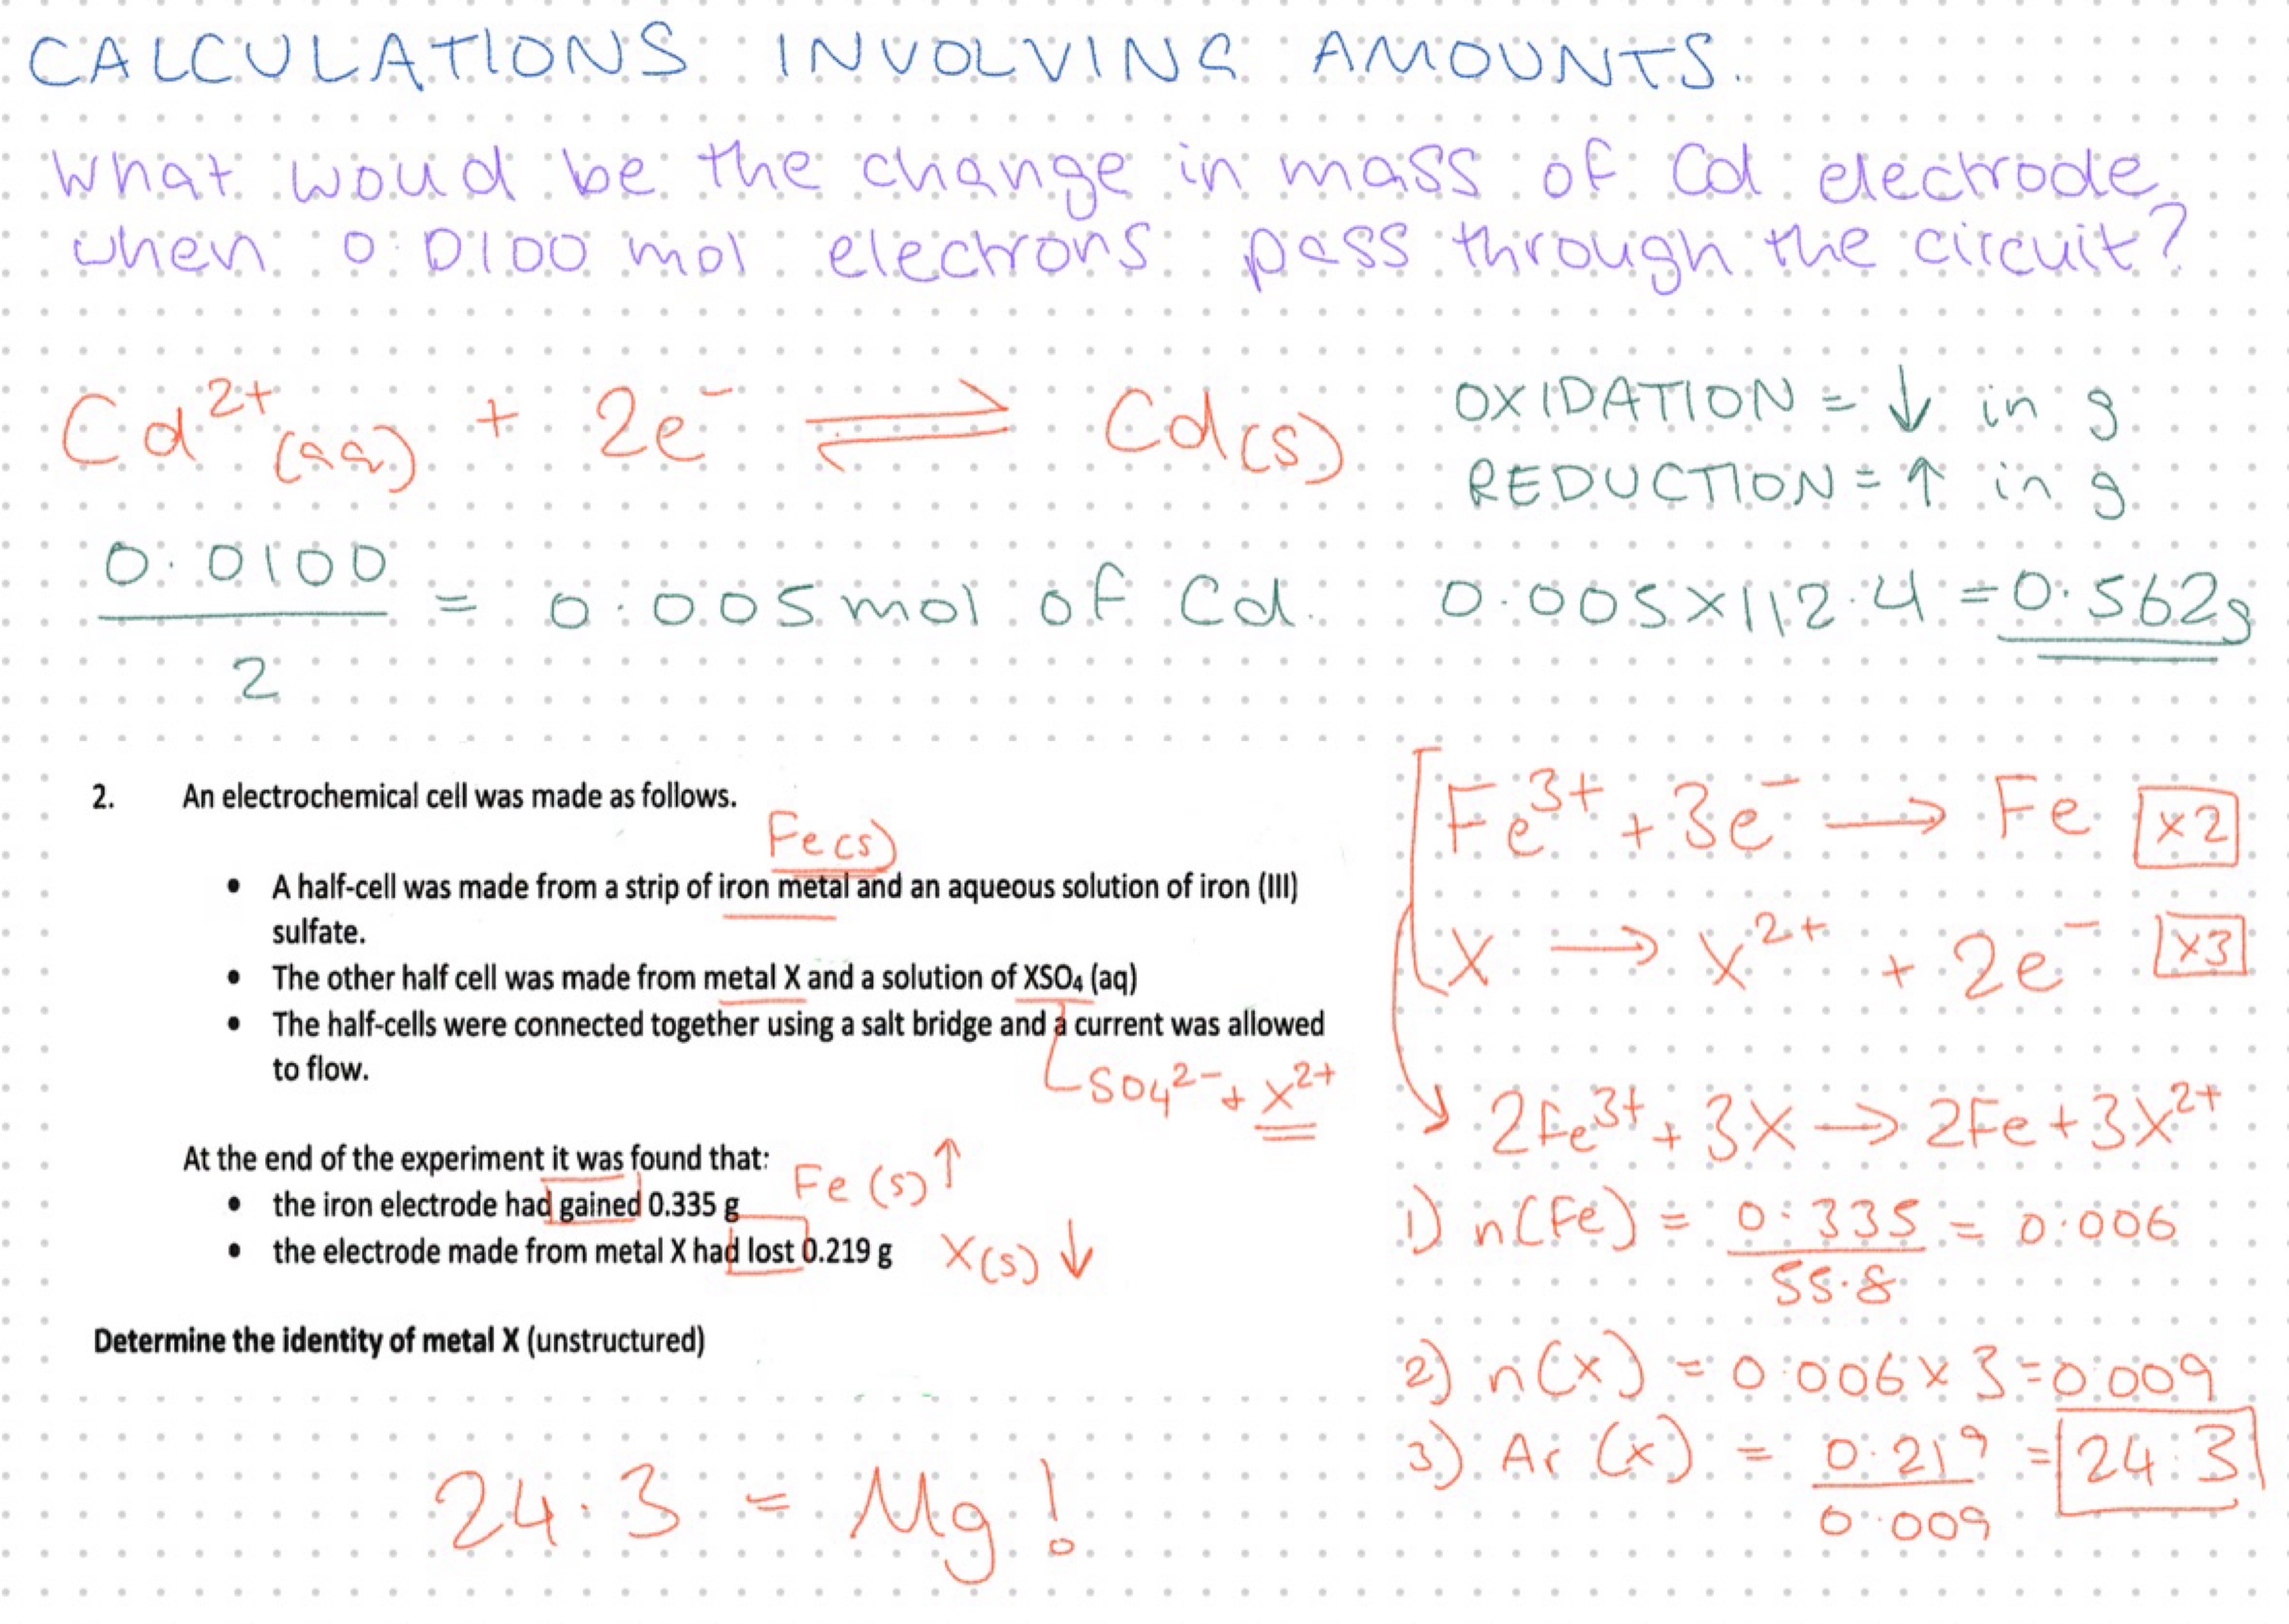 CALCULATIONS INVOLVING AMOUNTS.
What woud be the change in mass of Cd electrode
when 0.0100 mol electrons pass through the circuit?
Cd²⁺(aq) + 2e⁻ ⇌ Cd(s)
OXIDATION = ↓ in g
REDUCTION = ↑ in g
0.0100 / 2 = 0.005 mol of Cd. 0.005 × 112.4 = 0.562g
2. An electrochemical cell was made as follows.
Fe(s)
• A half-cell was made from a strip of iron metal and an aqueous solution of iron (III)
sulfate.
• The other half cell was made from metal X and a solution of XSO₄ (aq)
• The half-cells were connected together using a salt bridge and a current was allowed
to flow.
SO₄²⁻ + X²⁺
At the end of the experiment it was found that:
• the iron electrode had gained 0.335 g
Fe(s) ↑
• the electrode made from metal X had lost 0.219 g
X(s) ↓
Determine the identity of metal X (unstructured)
24.3 = Mg!
Fe³⁺ + 3e⁻ → Fe ×2
X → X²⁺ + 2e⁻ ×3
2Fe³⁺ + 3X → 2Fe + 3X²⁺
1) n(Fe) = 0.335 / 55.8 = 0.006
2) n(X) = 0.006 × 3 = 0.009
3) Ar (X) = 0.219 / 0.009 = 24.3